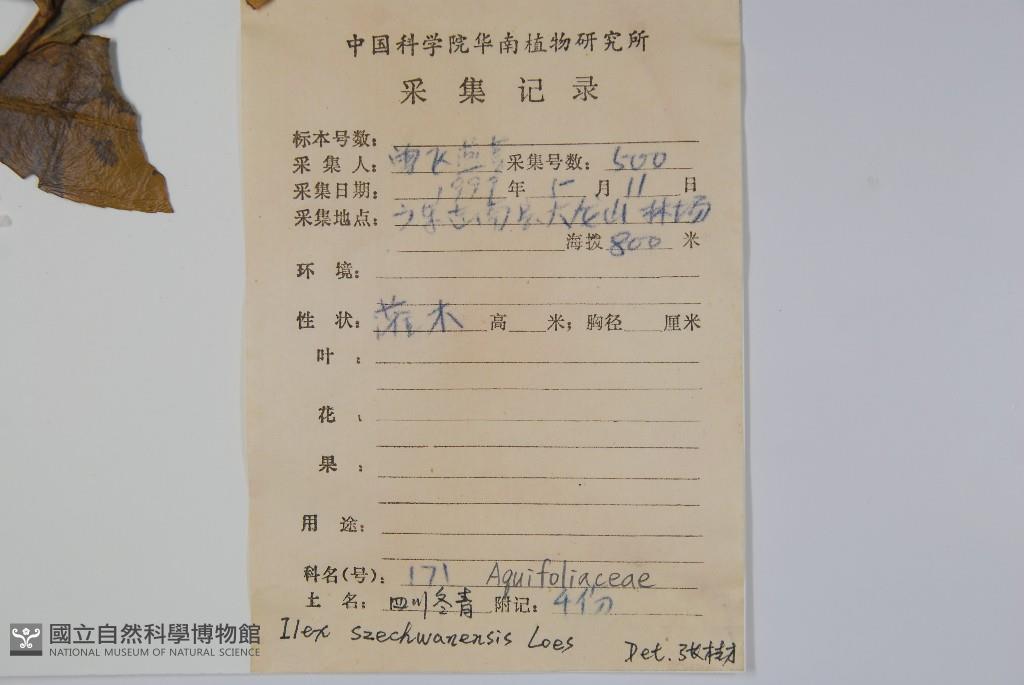 中国科学院华南植物研究所
采集记录
标本号数：
采集人： 采集号数：500
采集日期：1999年5月11日
采集地点：大龙山林场
海拨800米
环境：
性状：灌木 高 米；胸径 厘米
叶：
花：
果：
用途：
科名(号)：171 Aquifoliaceae
土名：四川冬青 附记：4份
Ilex szechwanensis Loes
Det. 张桂才
國立自然科學博物館
NATIONAL MUSEUM OF NATURAL SCIENCE